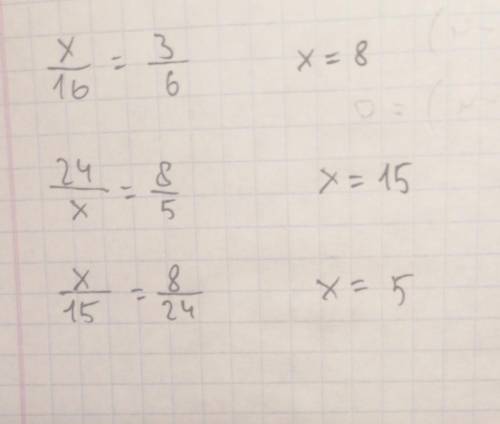 x/16 = 3/6 x = 8
24/x = 8/5 x = 15
x/15 = 8/24 x = 5